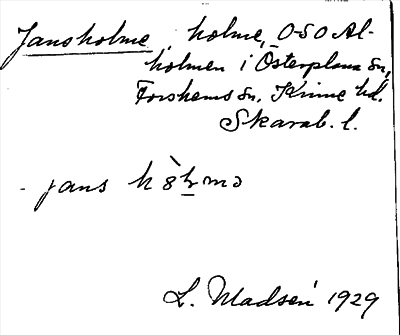 Jansholme, holme, OSO Al-
holmen i Österplana sn,
Forshems sn. Kinne hd.
Skarab. l.
jans
L. Madsén 1929